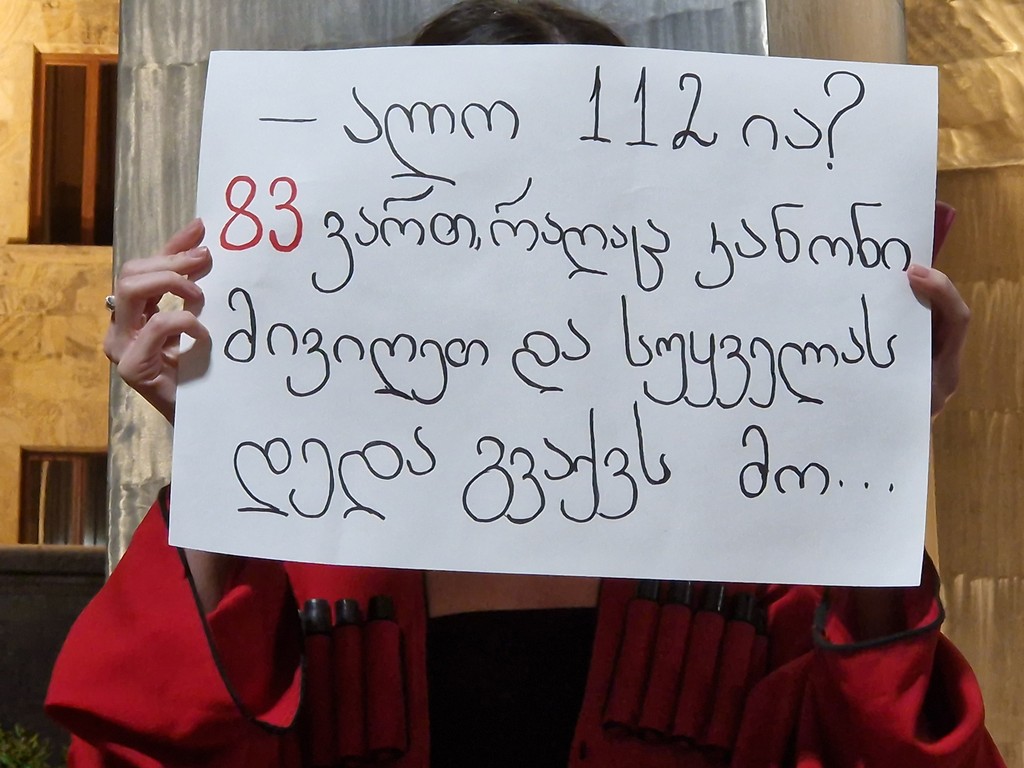 — ალო 112 ია?
83 ვართ, რაღაც კანონი
მივიღეთ და სუყველას
დედა გვაქვს მო...